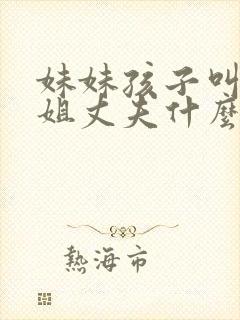 妹妹孩子叫
姐丈夫什麼
熱海市